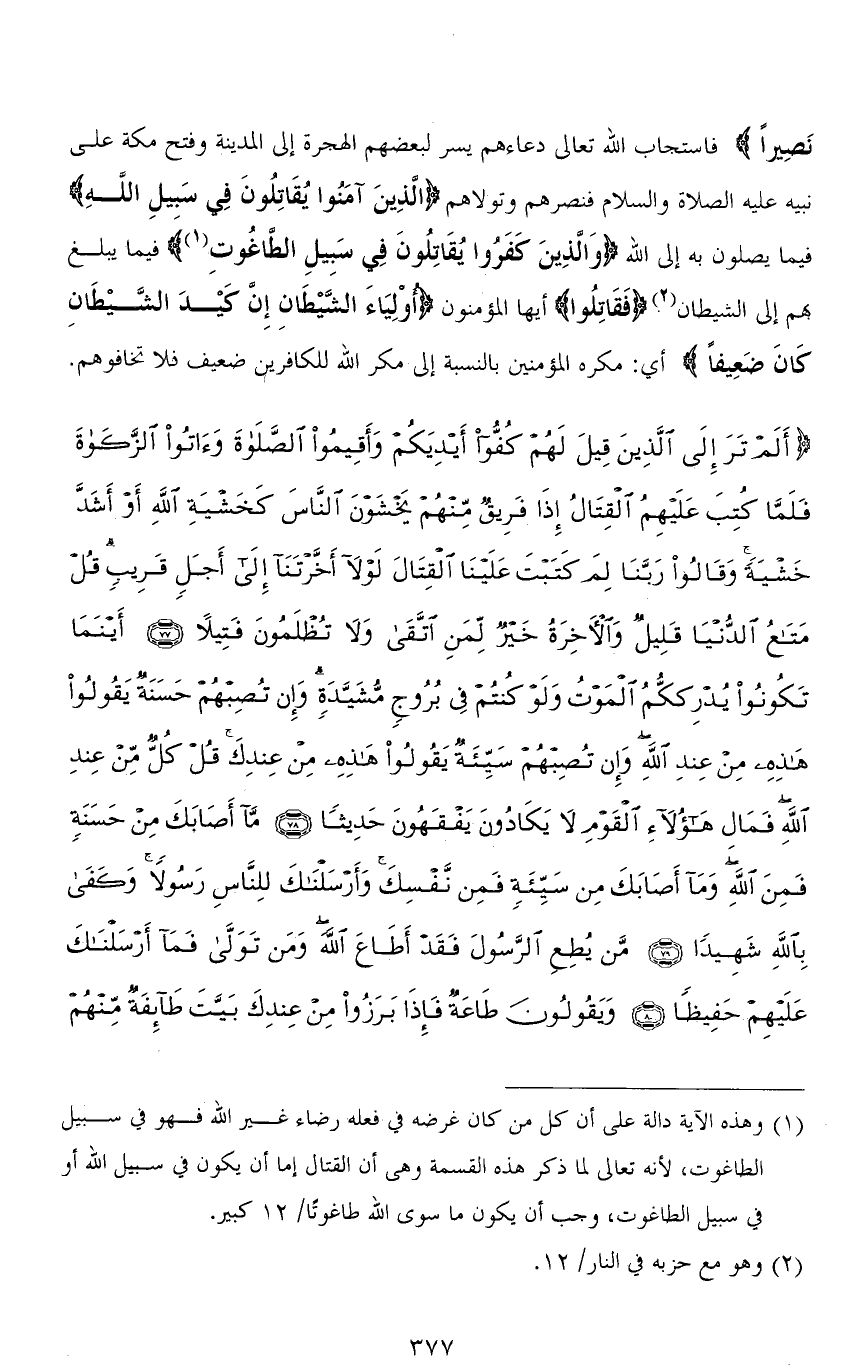 نَصِيراً ﴾ فاستجاب الله تعالى دعاءهم يسر لبعضهم الهجرة إلى المدينة وفتح مكة على
نبيه عليه الصلاة والسلام فنصرهم وتولاهم ﴿الَّذِينَ آمَنُوا يُقَاتِلُونَ فِي سَبِيلِ اللَّهِ﴾
فيما يصلون به إلى الله ﴿وَالَّذِينَ كَفَرُوا يُقَاتِلُونَ فِي سَبِيلِ الطَّاغُوتِ(١)﴾ فيما يبلغ
بهم إلى الشيطان(٢) ﴿فَقَاتِلُوا﴾ أيها المؤمنون ﴿أَوْلِيَاءَ الشَّيْطَانِ إِنَّ كَيْدَ الشَّيْطَانِ
كَانَ ضَعِيفاً ﴾ أي: مكره المؤمنين بالنسبة إلى مكر الله للكافرين ضعيف فلا تخافوهم.
﴿ أَلَمْ تَرَ إِلَى ٱلَّذِينَ قِيلَ لَهُمْ كُفُّوٓا۟ أَيْدِيَكُمْ وَأَقِيمُوا۟ ٱلصَّلَوٰةَ وَءَاتُوا۟ ٱلزَّكَوٰةَ
فَلَمَّا كُتِبَ عَلَيْهِمُ ٱلْقِتَالُ إِذَا فَرِيقٌ مِّنْهُمْ يَخْشَوْنَ ٱلنَّاسَ كَخَشْيَةِ ٱللَّهِ أَوْ أَشَدَّ
خَشْيَةً ۚ وَقَالُوا۟ رَبَّنَا لِمَ كَتَبْتَ عَلَيْنَا ٱلْقِتَالَ لَوْلَآ أَخَّرْتَنَآ إِلَىٰٓ أَجَلٍ قَرِيبٍ ۗ قُلْ
مَتَـٰعُ ٱلدُّنْيَا قَلِيلٌ وَٱلْـَٔاخِرَةُ خَيْرٌ لِّمَنِ ٱتَّقَىٰ وَلَا تُظْلَمُونَ فَتِيلًا ٧٧ أَيْنَمَا
تَكُونُوا۟ يُدْرِككُّمُ ٱلْمَوْتُ وَلَوْ كُنتُمْ فِى بُرُوجٍ مُّشَيَّدَةٍ ۗ وَإِن تُصِبْهُمْ حَسَنَةٌ يَقُولُوا۟
هَـٰذِهِۦ مِنْ عِندِ ٱللَّهِ ۖ وَإِن تُصِبْهُمْ سَيِّئَةٌ يَقُولُوا۟ هَـٰذِهِۦ مِنْ عِندِكَ ۚ قُلْ كُلٌّ مِّنْ عِندِ
ٱللَّهِ ۖ فَمَالِ هَـٰٓؤُلَآءِ ٱلْقَوْمِ لَا يَكَادُونَ يَفْقَهُونَ حَدِيثًا ٧٨ مَّآ أَصَابَكَ مِنْ حَسَنَةٍ
فَمِنَ ٱللَّهِ ۖ وَمَآ أَصَابَكَ مِن سَيِّئَةٍ فَمِن نَّفْسِكَ ۚ وَأَرْسَلْنَـٰكَ لِلنَّاسِ رَسُولًا ۚ وَكَفَىٰ
بِٱللَّهِ شَهِيدًا ٧٩ مَّن يُطِعِ ٱلرَّسُولَ فَقَدْ أَطَاعَ ٱللَّهَ ۖ وَمَن تَوَلَّىٰ فَمَآ أَرْسَلْنَـٰكَ
عَلَيْهِمْ حَفِيظًا ٨٠ وَيَقُولُونَ طَاعَةٌ فَإِذَا بَرَزُوا۟ مِنْ عِندِكَ بَيَّتَ طَآئِفَةٌ مِّنْهُمْ
(١) وهذه الآية دالة على أن كل من كان غرضه في فعله رضاء غير الله فهو في سبيل
الطاغوت، لأنه تعالى لما ذكر هذه القسمة وهى أن القتال إما أن يكون في سبيل الله أو
في سبيل الطاغوت، وجب أن يكون ما سوى الله طاغوتًا/ ١٢ كبير.
(٢) وهو مع حزبه في النار/ ١٢.
٣٧٧